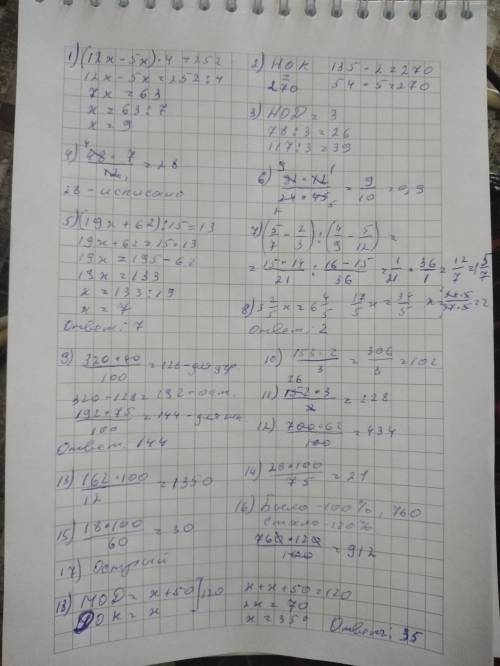 1) (12x-5x)·4=252
12x-5x=252:4
7x=63
x=63:7
x=9
2) НОК 135·2=270
= 270 54·5=270
3) НОД = 3
78:3=26
117:3=39
4) 48·7/12=28
28 - исписано
5) (19x+62):15=13
19x+62=15·13
19x=195-62
19x=133
x=133:19
x=7
Ответ: 7
6) = 9/10 = 0,9
7) (5/7 - 2/3) : (4/9 - 5/12) =
= 15-14/21 : 16-15/36 = 1/21 · 36/1 = 12/7 = 1 5/7
8) 3 2/5 x = 6 4/5 17/5 x = 34/5 x = 34·5/17·5 = 2
Ответ: 2
9) 320·40/100 = 128 -
320-128=192 - ост.
192·75/100 = 144 -
Ответ 144
10) 153·2/3 = 306/3 = 102
11) 152·3/2 = 228
12) 700·62/100 = 434
13) 162·100/12 = 1350
14) ·100/75 =
15) 18·100/60 = 30
16) Было - 100%, 760
Стало - 120%
760·120/100 = 912
17) Острый
18) MOD = x+50 ] 120
DOK = x
x+x+50=120
2x=70
x=35°
Ответ: 35